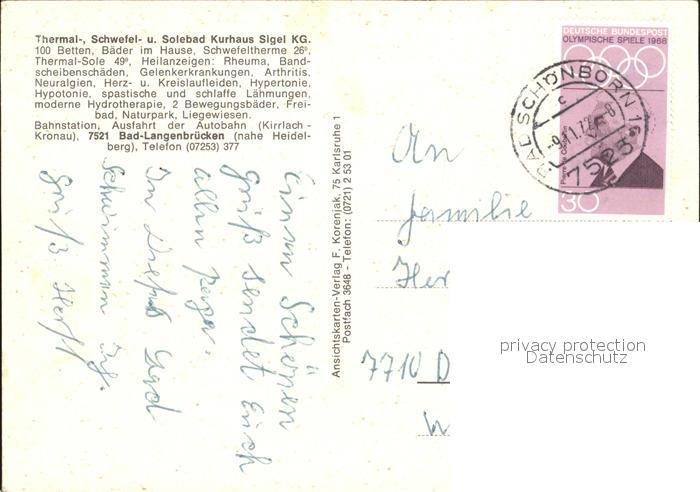 Thermal-, Schwefel- u. Solebad Kurhaus Sigel KG.
100 Betten, Bäder im Hause, Schwefeltherme 26°,
Thermal-Sole 49°, Heilanzeigen: Rheuma, Band-
scheibenschäden, Gelenkerkrankungen, Arthritis,
Neuralgien, Herz- u. Kreislaufleiden, Hypertonie,
Hypotonie, spastische und schlaffe Lähmungen,
moderne Hydrotherapie, 2 Bewegungsbäder, Frei-
bad, Naturpark, Liegewiesen.
Bahnstation, Ausfahrt der Autobahn (Kirrlach -
Kronau), 7521 Bad-Langenbrücken (nahe Heidel-
berg), Telefon (07253) 377
Einen Schönen
Gruß sendet Euch
allen
In Liebe und
Schwimmen
Gruß
Ansichtskarten-Verlag F. Korenjak, 75 Karlsruhe 1
Postfach 3648 - Telefon: (0721) 2 53 01
DEUTSCHE BUNDESPOST
OLYMPISCHE SPIELE 1968
30
BAD SCHÖNBORN 1
c
7525
An
Familie
Her
7710 D
privacy protection
Datenschutz